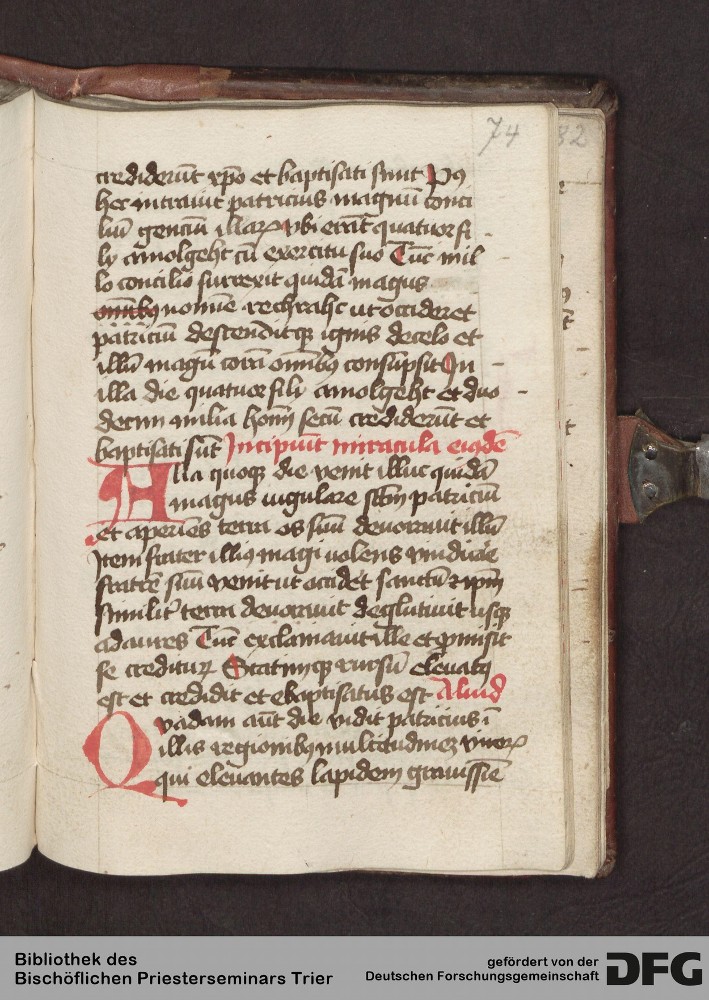 74
32
crediderūt xp̄o et baptisati sunt Pꝰ
hec intrauit patricius magnū conci
liū genciū illarꝝ vbi erāt quatuor fi
ly amolgeht cū exercitu suo Tūc in il
lo concilio surrexit quidā magus
om̄ibꝫ nomīe rechrahc ut occideret
patriciū descenditqꝫ ignis de celo et
illū magū corā om̄ibꝫ consūpsit In
illa die quatuor fili amolgeht et duo
decim milia hom̄ secū crediderūt et
baptisati sūt Incipiūt miracula eiꝰdē
Illa quoqꝫ die venit illuc quidā
magus iugulare sc̄m patriciū
et aperiēs terra os suū deuorauit illū
Item frater illiꝰ magi uolens vindicāe
fratrē suū venit ut occidēt sanctū ⁊ ip̄m
similit͛ terra deuorauit deglutiuit usqꝫ
ad aures Tūc exclamauit ille et ꝓmisit
se crediturꝝ Statimqꝫ rursū eleuatꝰ
est et credidit et ebaptisatus est Aliud
Quadam aūt die vidit patricius ī
illis regionibꝫ multitudinēz virorꝝ
qui eleuantes lapidem grauissīē
Bibliothek des
Bischöflichen Priesterseminars Trier
gefördert von der
Deutschen Forschungsgemeinschaft
DFG